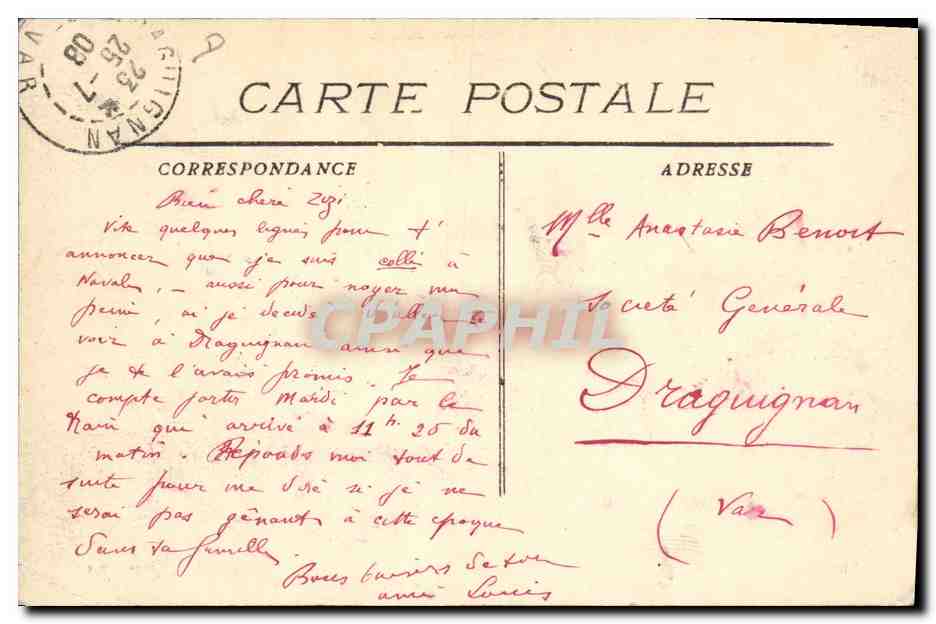 DRAGUIGNAN
23
25 -7
08
VAR
CARTE POSTALE
CORRESPONDANCE
ADRESSE
Bien chère Zizi
Vite quelques lignes pour t'
annoncer que je suis collé à
Navale, - aussi pour noyer ma
peine, ai je décidé d'aller te
voir à Draguignan ainsi que
je te l'avais promis. Je
compte partir Mardi par le
train qui arrive à 11h 25 du
matin. Réponds moi tout de
suite pour me dire si je ne
serai pas gênant à cette époque
dans ta famille
Bons baisers de ton
ami Louis
Mlle Anastasie Benoit
Société Générale
Draguignan
(Var)
CPAPHIL